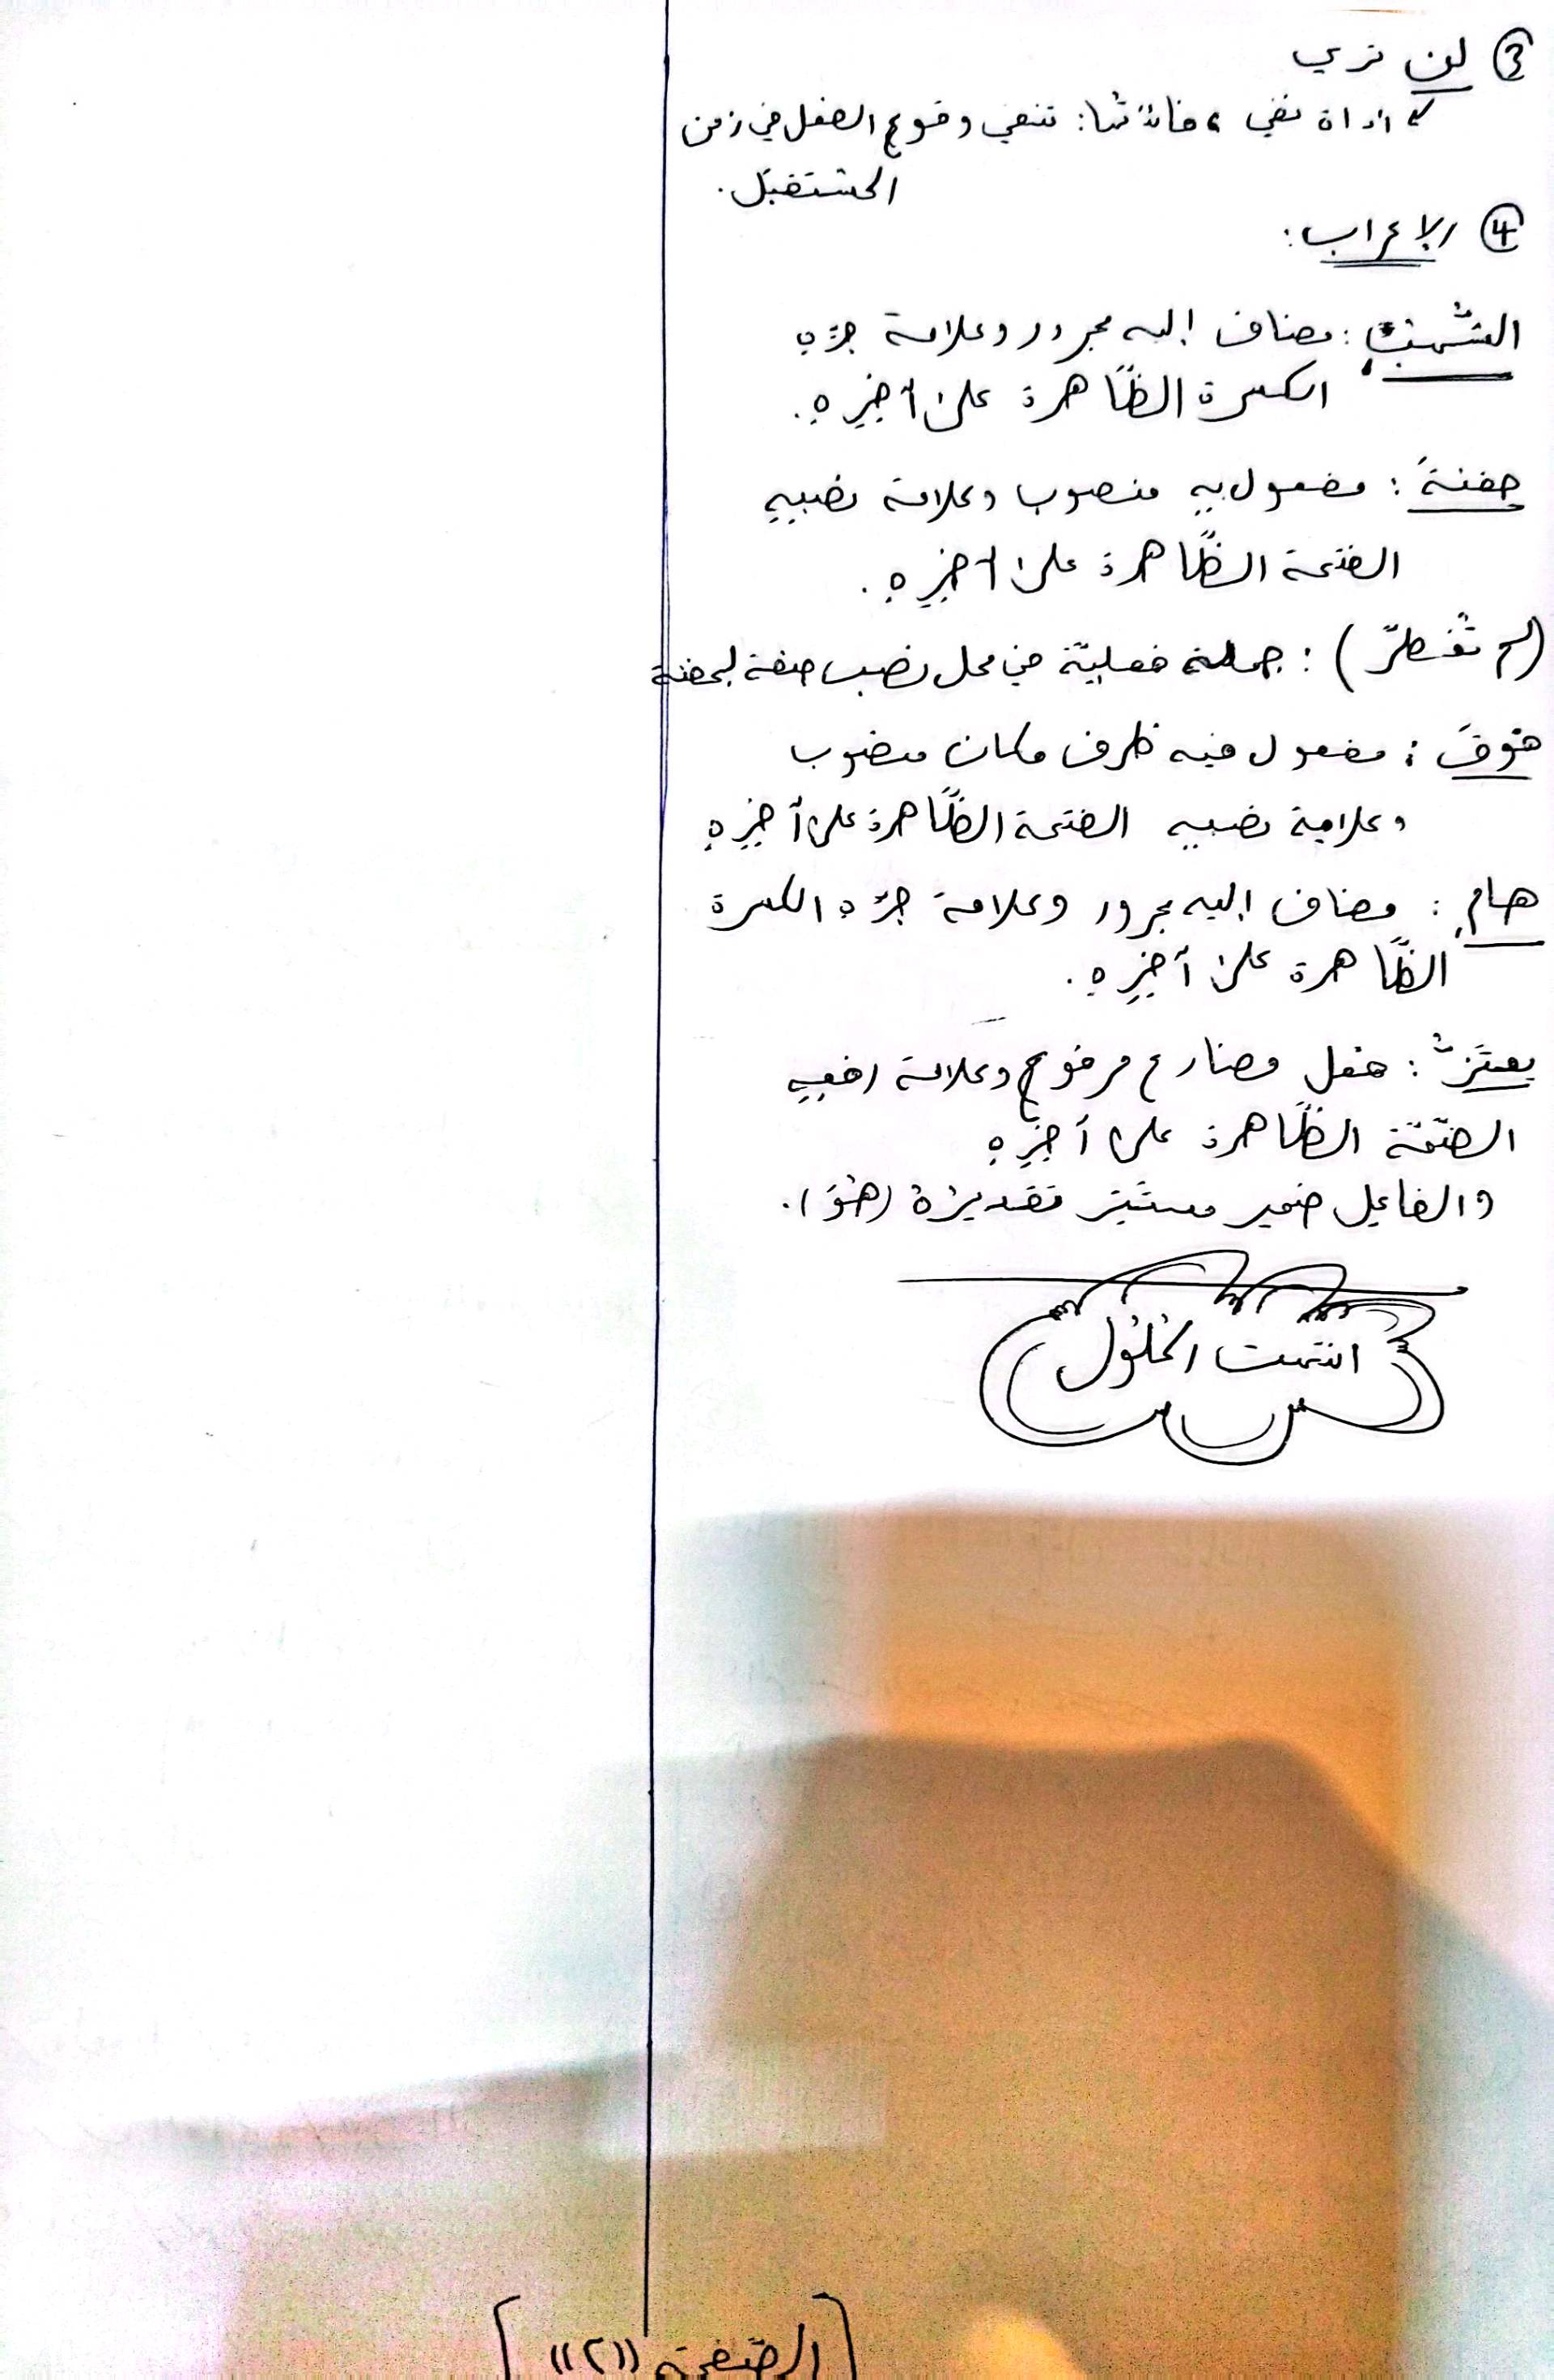 ③ لن تري
أداة نفي، فائدتها: تنفي وقوع الفعل في زمن
المستقبل.
④ الإعراب:
الشهبِ: مضاف إليه مجرور وعلامة جرّه
الكسرة الظّاهرة على آخِرِهِ.
جفنةً: مفعول بهِ منصوب وعلامة نصبِهِ
الفتحة الظّاهرة على آخِرِهِ.
(لم تُفطرْ): جملة فعليّة في محل نصب صفة لجفنة
فوقَ: مفعول فيه ظرف مكان منصوب
وعلامة نصبهِ الفتحة الظّاهرة على آخِرِهِ
هامِ: مضاف إليه مجرور وعلامة جرّه الكسرة
الظّاهرة على آخِرِهِ.
يعتزُّ: فعل مضارع مرفوع وعلامة رفعِهِ
الضّمّة الظّاهرة على آخِرِهِ
والفاعِل ضمير مستتِر تقديرُهُ (هُوَ).
انتهت الحُلُول
[الصّفحة ((٢))]